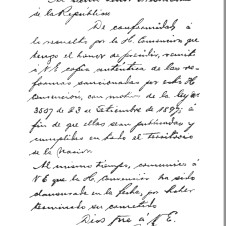 de la República
De conformidad á
lo resuelto por la H. Convencion
tengo el honor de remitir
á V.E. copia auténtica de las re-
formas sancionadas por esta H.
Convencion, con motivo de la ley Nº
3507 de 23 de Setiembre de 1897, á
fin de que ellas sean publicadas y
cumplidas en todo el territorio
de la Nacion.
Al mismo tiempo, comunico á
V.E. que la H. Convencion ha sido
clausurada en la fecha, por haber
terminado su cometido.
Dios gue á V.E.